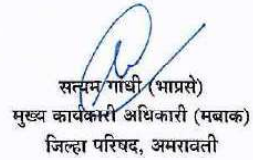 सत्यम गांधी (भाप्रसे)
मुख्य कार्यकारी अधिकारी (मबाक)
जिल्हा परिषद, अमरावती